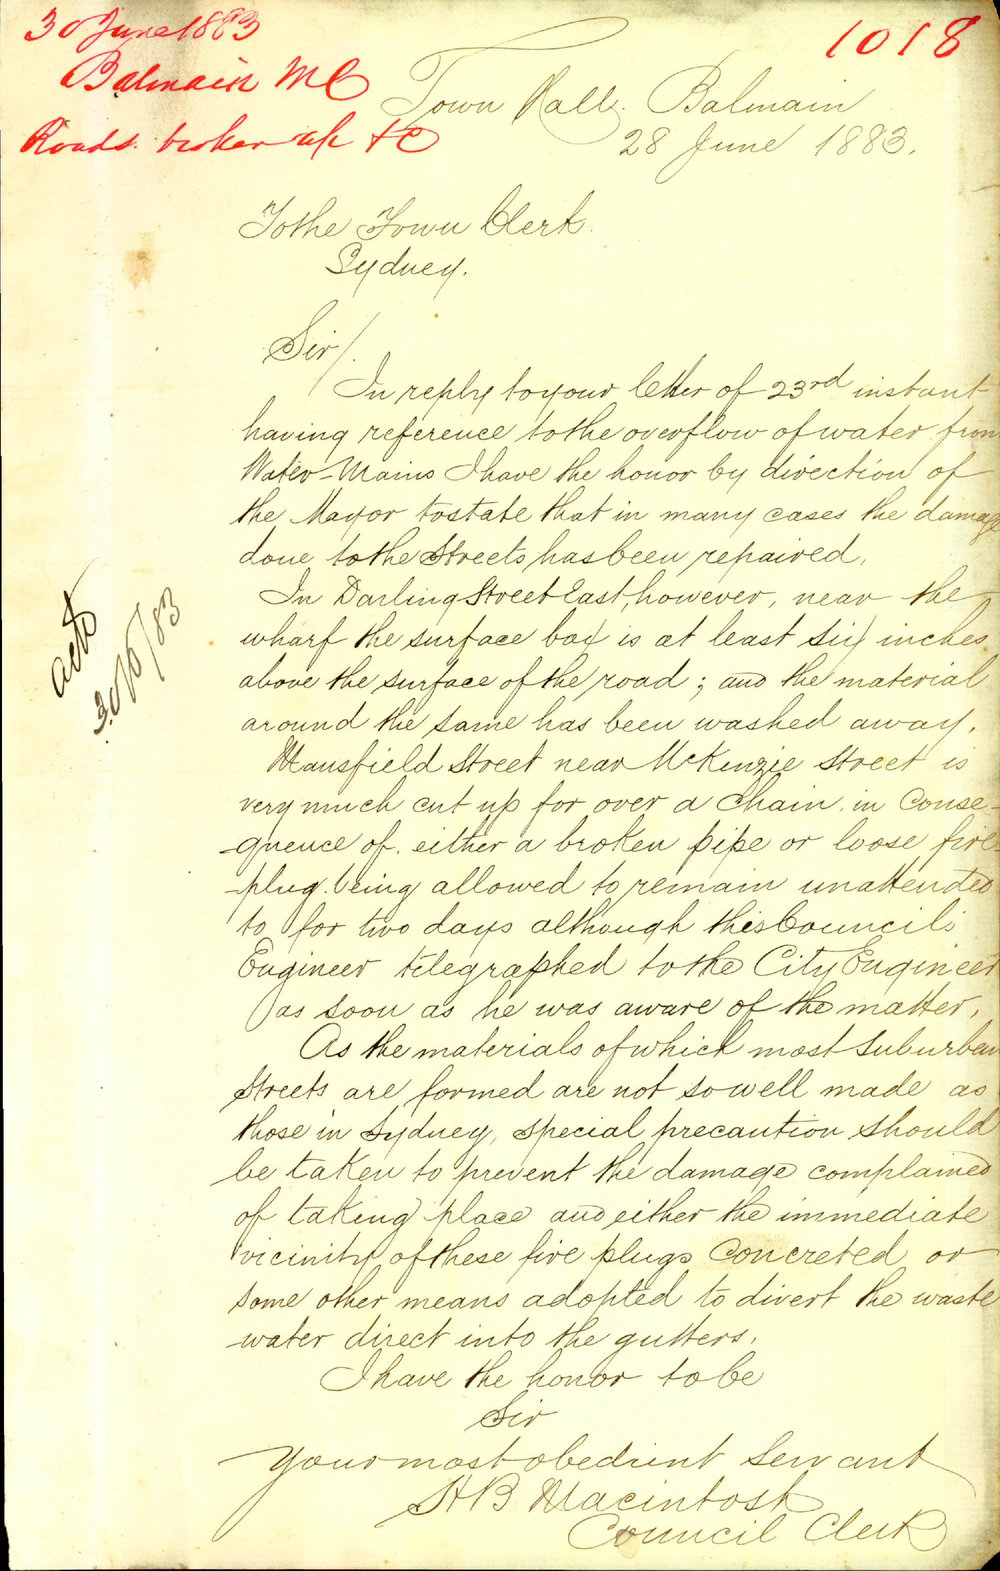 30 June 1883
Balmain M C
Roads broken up &c
1018
Town Hall Balmain
28 June 1883.
To the Town Clerk.
Sydney.
Sir/.
In reply to your letter of 23rd instant
having reference to the overflow of water from
Water-Mains I have the honor by direction of
the Mayor to state that in many cases the damage
done to the Streets has been repaired.
In Darling Street East, however, near the
wharf the surface box is at least six inches
above the surface of the road; and the material
around the same has been washed away.
Mansfield Street near McKenzie Street is
very much cut up for over a chain in conse-
quence of either a broken pipe or loose fire
plug being allowed to remain unattended
to for two days although this Council's
Engineer telegraphed to the City Engineer
as soon as he was aware of the matter.
As the materials of which most Suburban
Streets are formed are not so well made as
those in Sydney, special precaution should
be taken to prevent the damage complained
of taking place and either the immediate
vicinity of these fire plugs concreted or
some other means adopted to divert the waste
water direct into the gutters.
I have the honor to be
Sir
Your most obedient Servant
H B Macintosh
Council Clerk
30/6/83